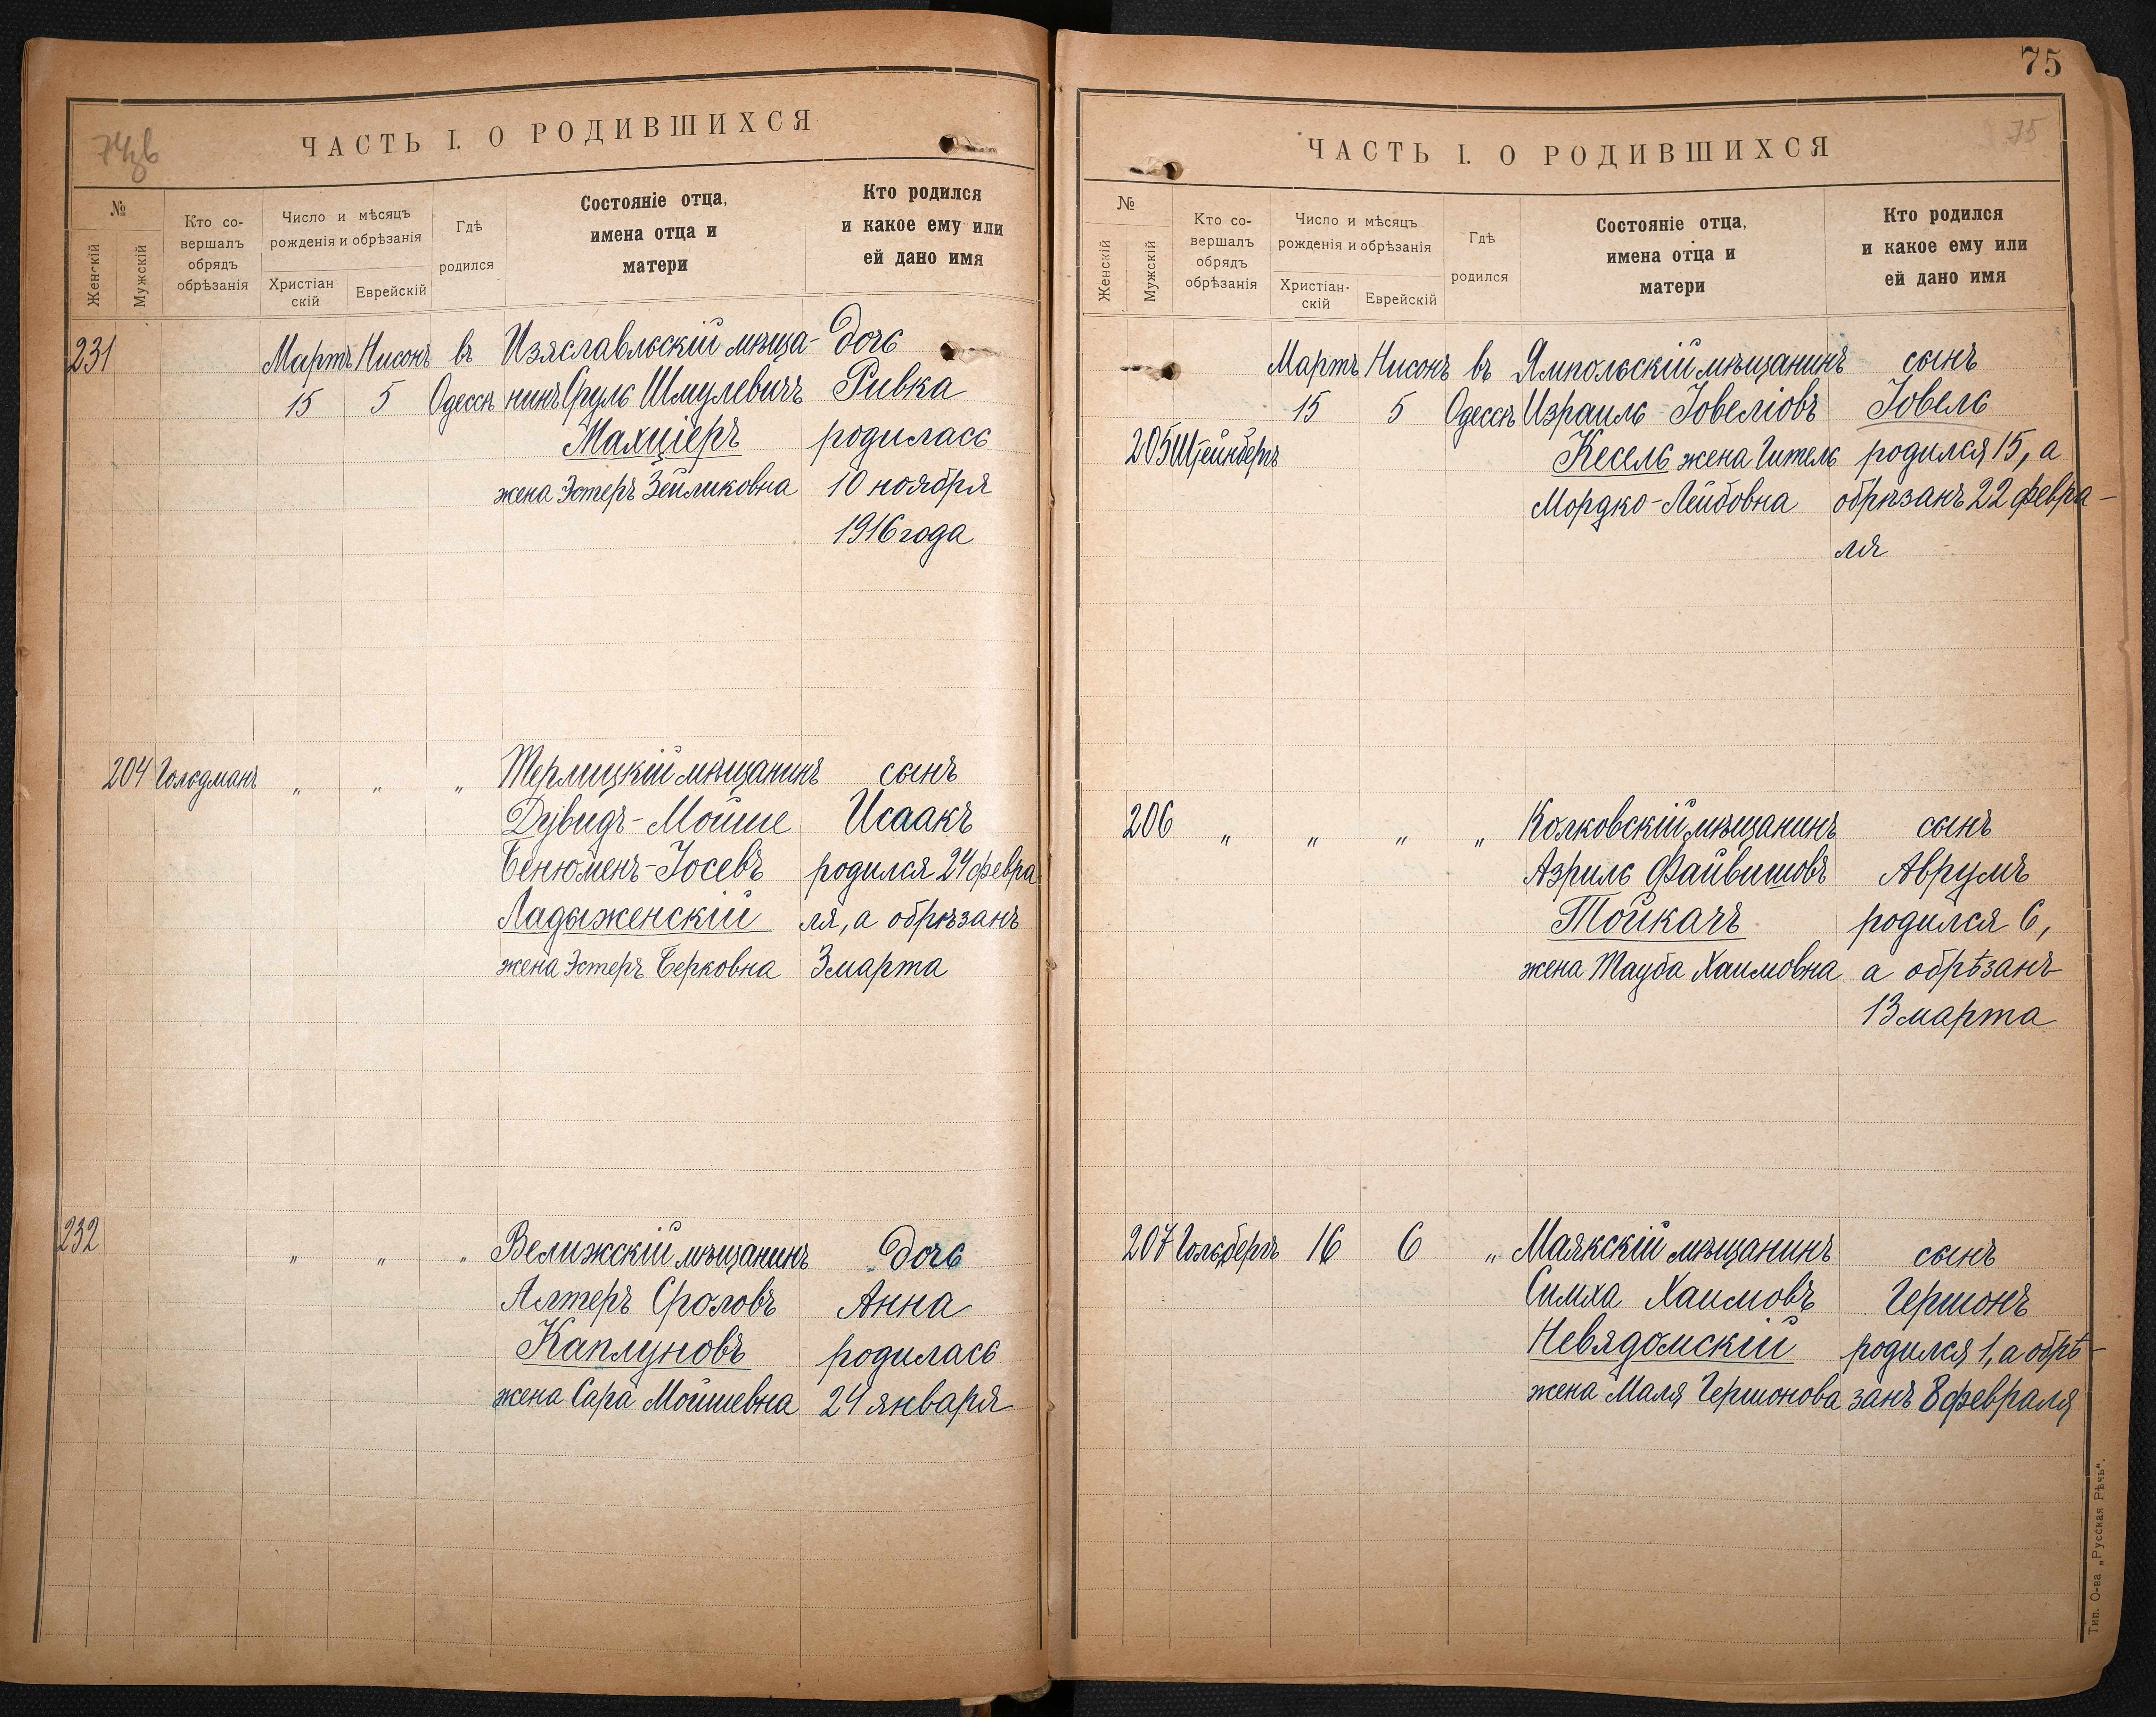 ЧАСТЬ I. О РОДИВШИХСЯ
№
Женскій
Мужскій
Кто со-
вершалъ
обрядъ
обрѣзанія
Число и мѣсяцъ
рожденія и обрѣзанія
Христіан
скій
Еврейскій
Гдѣ
родился
Состояніе отца,
имена отца и
матери
Кто родился
и какое ему или
ей дано имя
231 Мартъ Нисонъ въ Изяславльскій мѣща- дочь
15 5 Одессѣ нинъ Сруль Шмулевичъ Ривка
Махціеръ родилась
жена Эстеръ Зейликовна 10 ноября
1916 года
204 Гольдманъ " " " Терлицкій мѣщанинъ сынъ
Дувидъ-Мойше Исаакъ
Бенюменъ-Іосевъ родился 24 февра
Ладыженскій ля, а обрѣзанъ
жена Эстеръ Берковна 3 марта
232 " " " Велижскій мѣщанинъ дочь
Алтеръ Сроловъ Анна
Каплуновъ родилась
жена Сара Мойшевна 24 января
75
75
ЧАСТЬ I. О РОДИВШИХСЯ
№
Женскій
Мужскій
Кто со-
вершалъ
обрядъ
обрѣзанія
Число и мѣсяцъ
рожденія и обрѣзанія
Христіан-
скій
Еврейскій
Гдѣ
родился
Состояніе отца,
имена отца и
матери
Кто родился
и какое ему или
ей дано имя
Мартъ Нисонъ въ Ямпольскій мѣщанинъ сынъ
15 5 Одессѣ Израиль Іовеліовъ Іовель
205 Штейнбергъ Кесель жена Гитель родился 15, а
Мордко-Лейбовна обрѣзанъ 22 февра-
ля
206 " " " " Колковскій мѣщанинъ сынъ
Азриль Файвишовъ Аврумъ
Тойкачъ родился 6,
жена Тауба Хаимовна а обрѣзанъ
13 марта
207 Гольдбергъ 16 6 " Маякскій мѣщанинъ сынъ
Симха Хаимовъ Гершонъ
Невядомскій родился 1, а обрѣ-
жена Маля Гершонова занъ 8 февраля
Тип. О-ва „Русская Рѣчь".